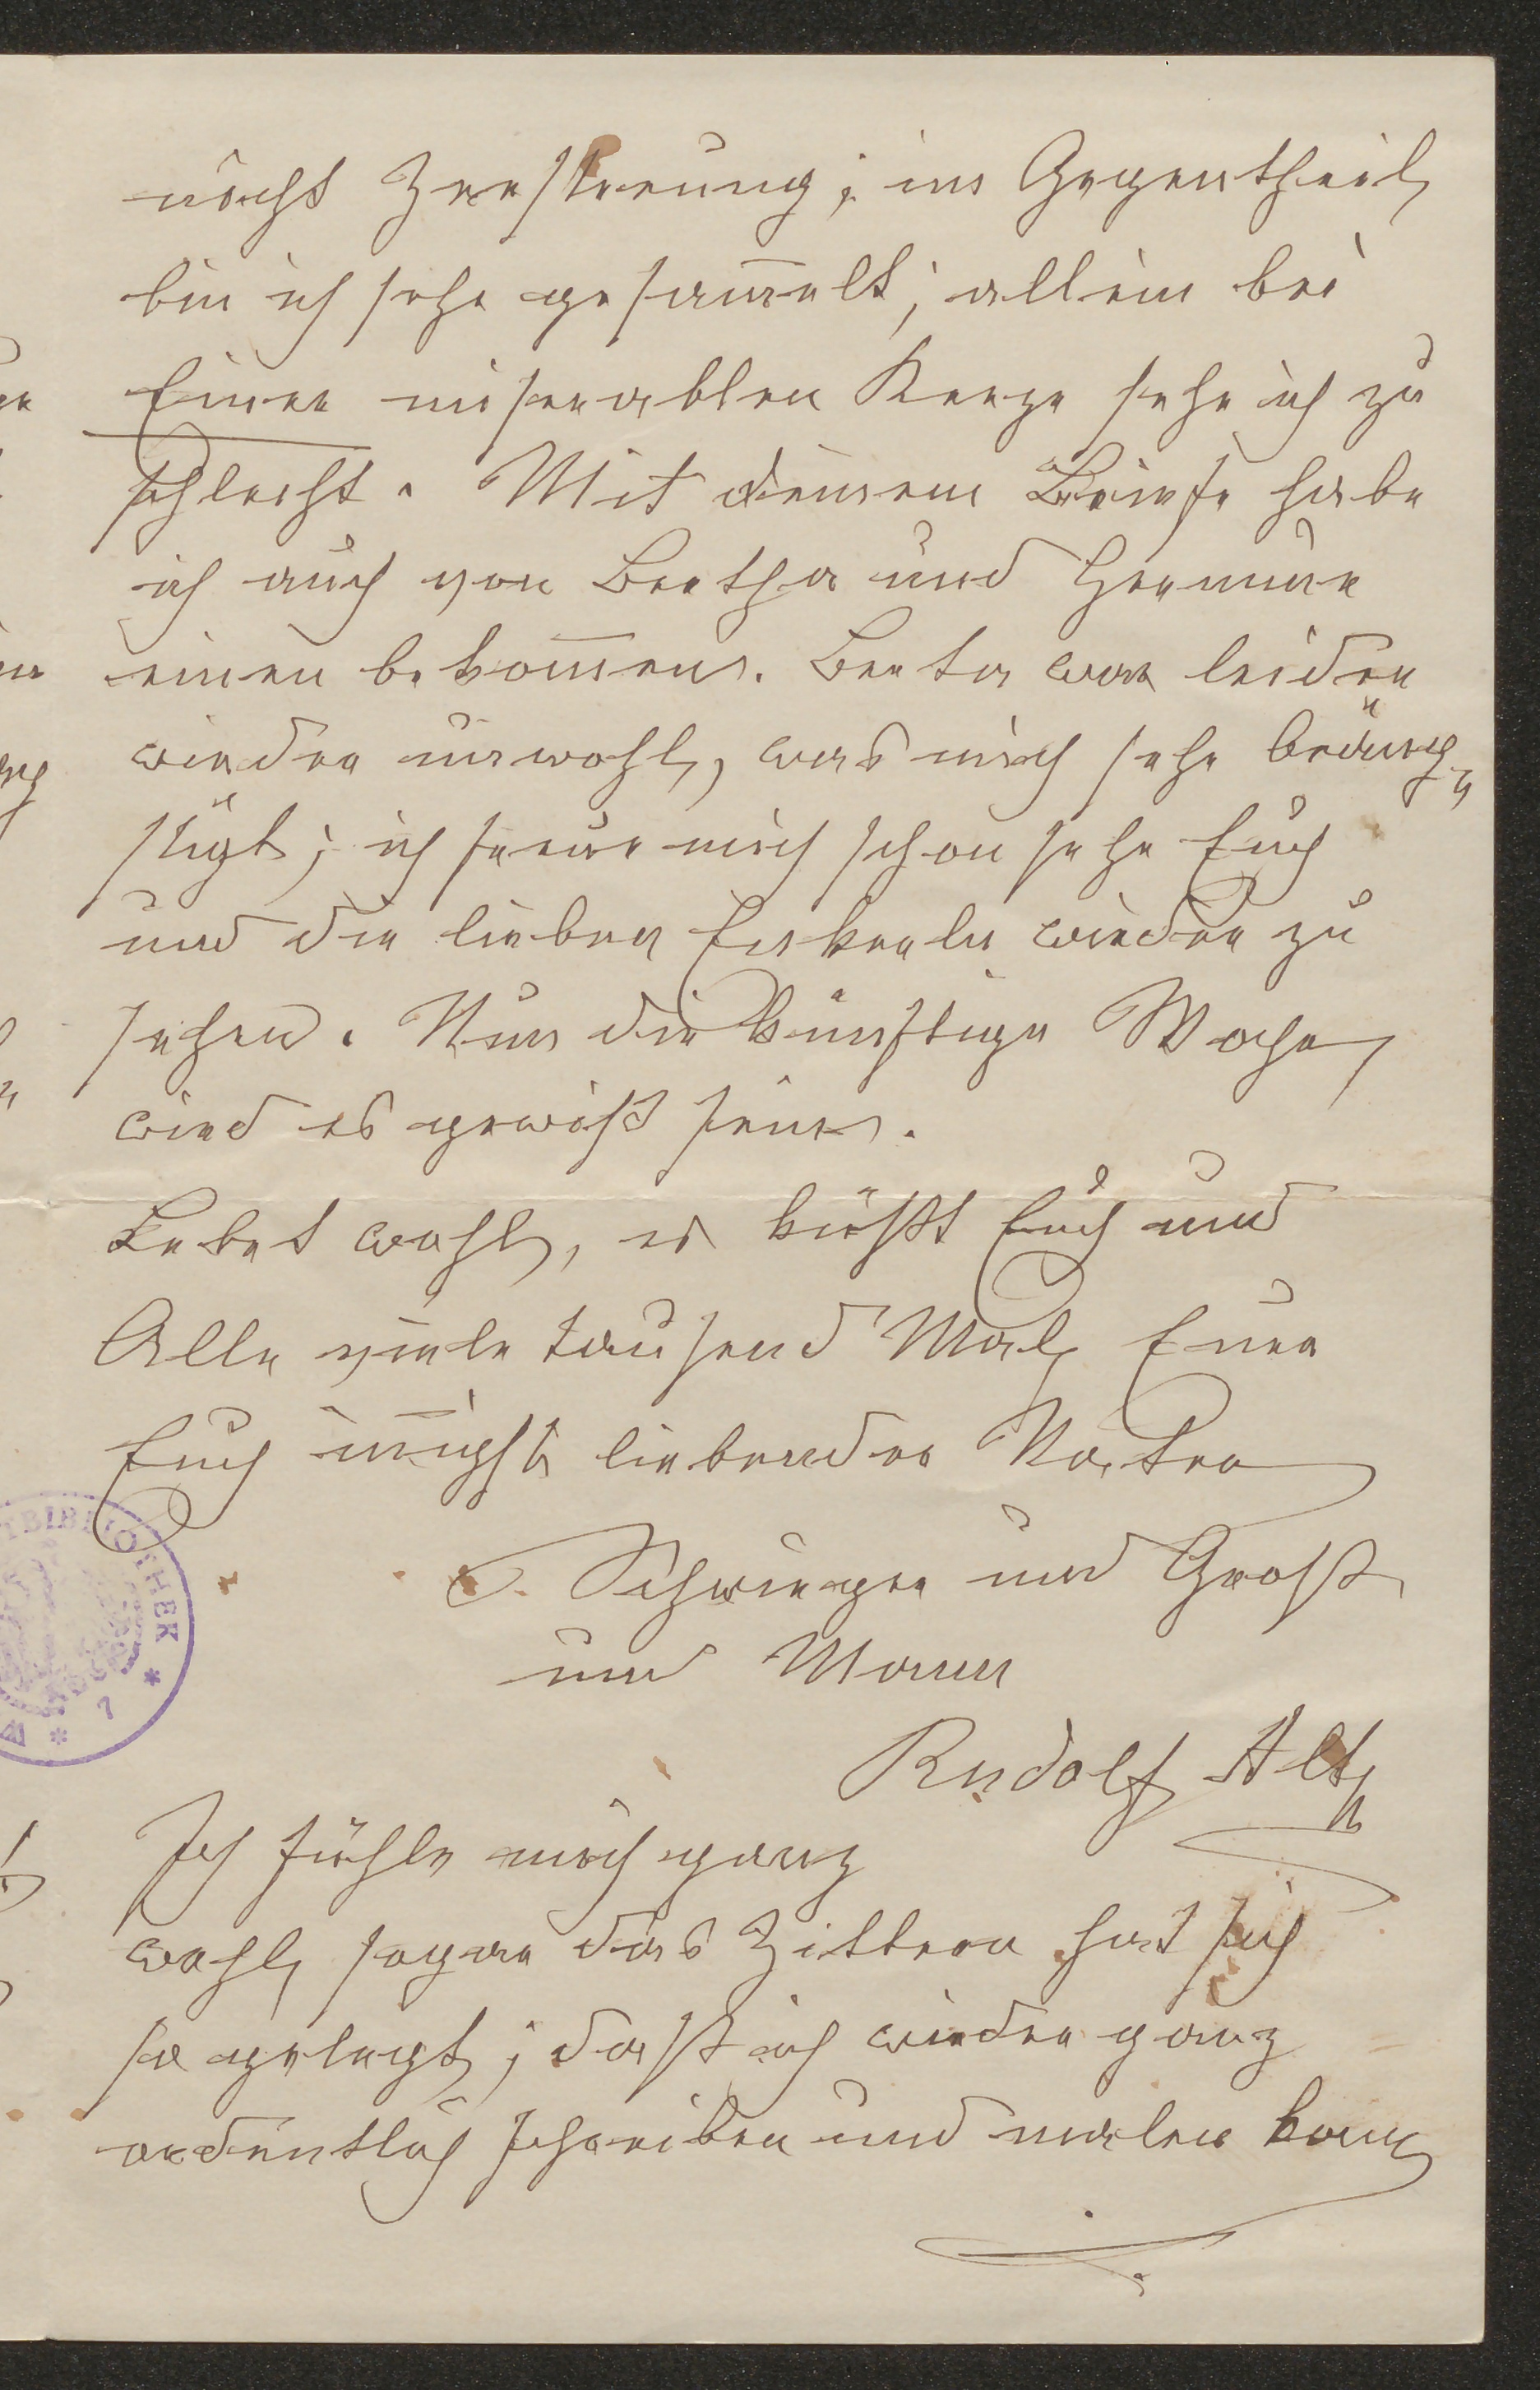 nicht Zerstreuung; im Gegentheil
bin ich sehr gesam̅elt; allein bei
Einer miserablen Kerze sehe ich zu
schlecht. Mit deinem Briefe habe
ich auch von Bertha und Hermine
einen bekom̅en. Berta war leider
wieder unwohl, was mich sehr beäng„
stigt; ich freue mich schon sehr Euch
und die lieben Enkerln wieder zu
sehen. Nun die künftige Woche
wird es gewiß sein.
Lebet wohl, es küßt Euch und
Alle viele tausend Mal Euer
Euch in̅igst liebender Vater
Schwieger und Groß
und Mann
Rudolf Alt
Ich fühle mich ganz
wohl, sogar das Zittern hat sich
so gelegt; daß ich wieder ganz
ordentlich schreiben und malen kann
BIBLIOTHEK
* 7 *